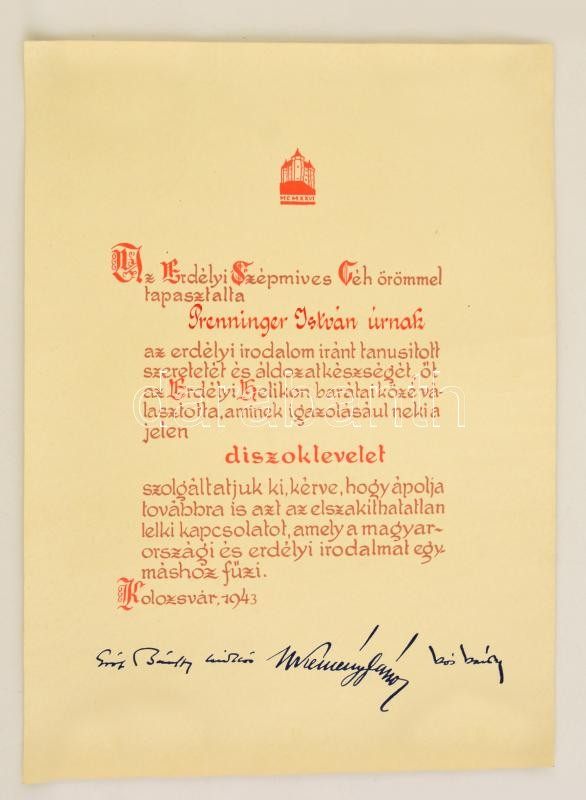 MCMXXVI
Az Erdélyi Szépmives Céh örömmel
tapasztalta
Prenninger István úrnak
az erdélyi irodalom iránt tanusitott
szeretetét és áldozatkészségét, őt
az Erdélyi Helikon barátai közé vá-
lasztotta, aminek igazolásául neki a
jelen
diszoklevelet
szolgáltatjuk ki, kérve, hogy ápolja
továbbra is azt az elszakithatatlan
lelki kapcsolatot, amely a magyar-
országi és erdélyi irodalmat egy-
máshoz fűzi.
Kolozsvár, 1943
Gróf Bánffy Miklós Kemény János Kós Károly
darabanth